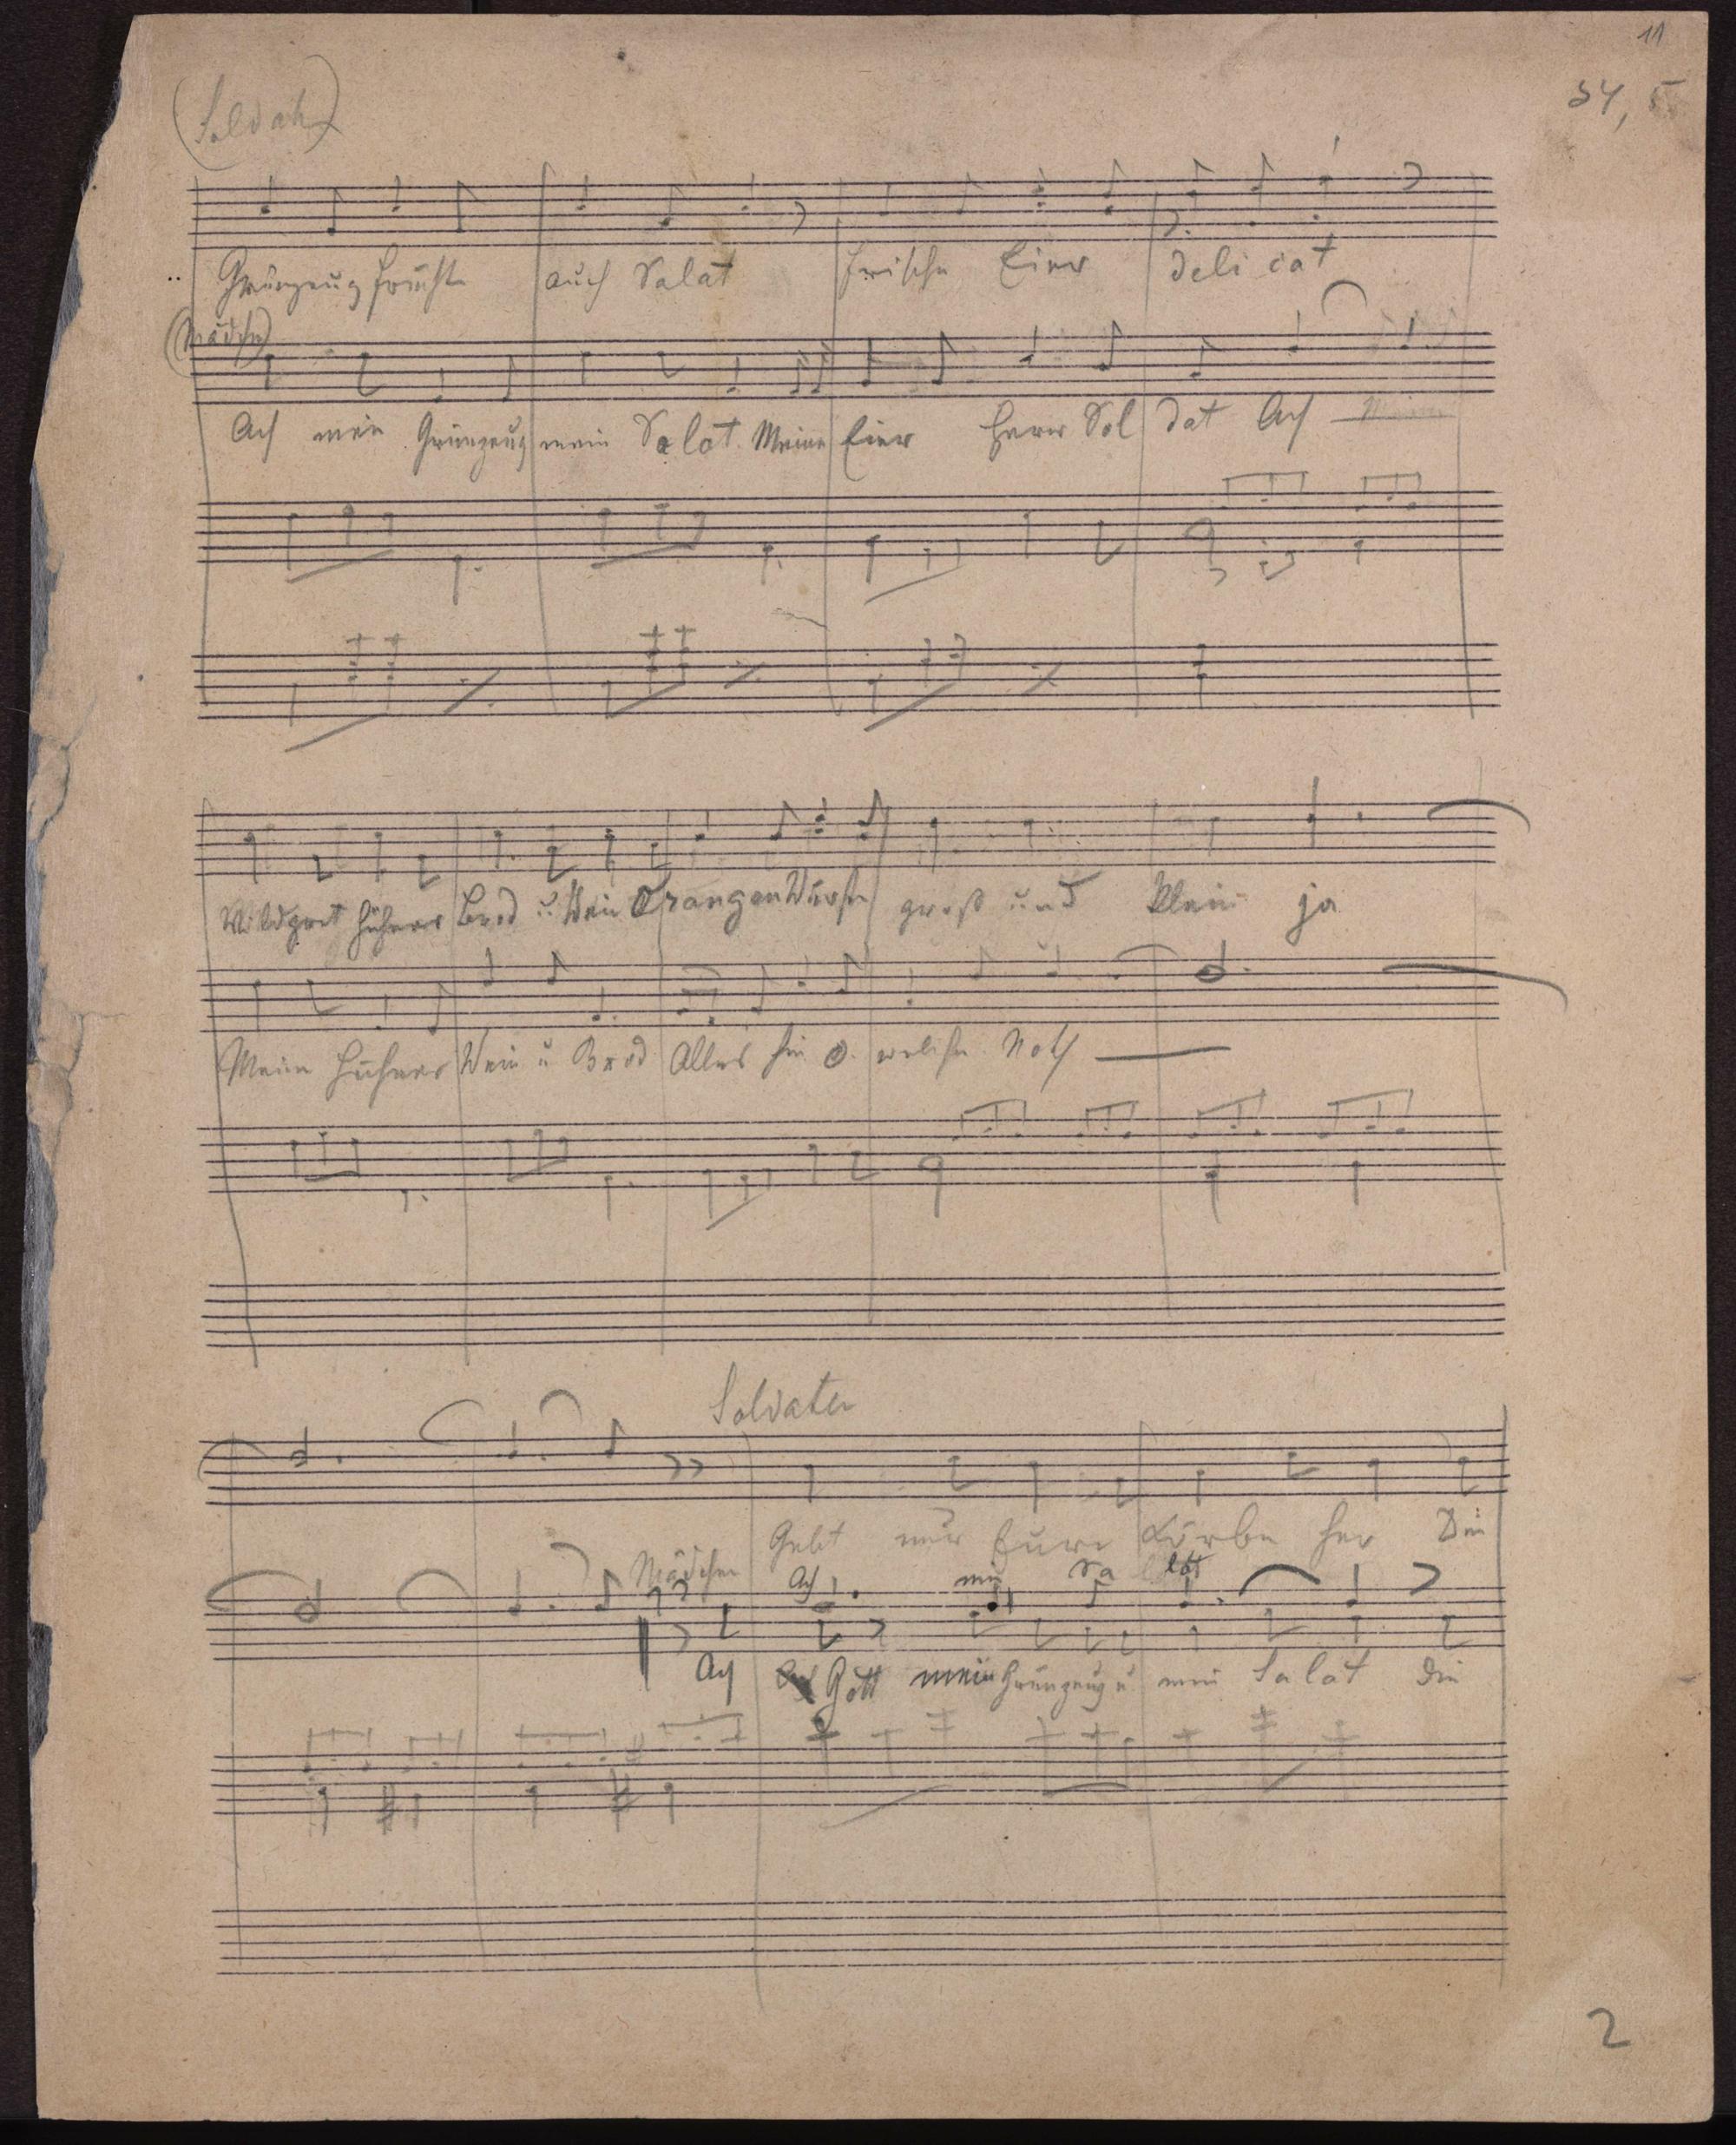 11
34, 5
(Soldat)
Grünzeug Früchte auch Salat frische Eier delicat
(Mädch)
Ach mein Grünzeug mein Salat Meine Eier Herr Soldat Ach
Wildpret Hühner Brod u Wein Orangen Würste groß und klein ja
Meine Hühner Wein u Brod Alles hin O welche Noth
Soldaten
Gebt nur Eure Körbe her Die
Mädchen Ach mein Salat
Ach Gott mein Grünzeug u mein Salat Die
2